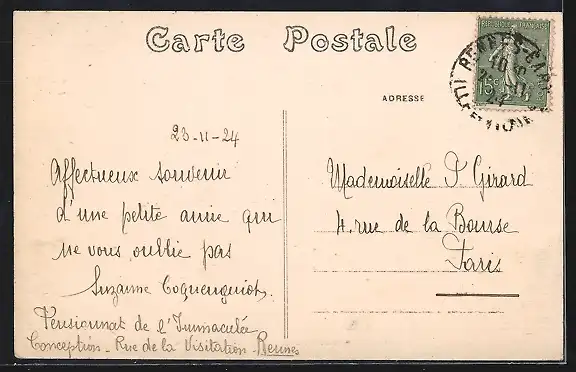 Carte Postale
ADRESSE
RENNES-GARE
15c
23-11-24
Affectueux souvenir
d'une petite amie qui
ne vous oublie pas
Suzanne
Pensionnat de l'Immaculée
Conception - Rue de la Visitation - Rennes
Mademoiselle P. Girard
4, rue de la Bourse
Paris